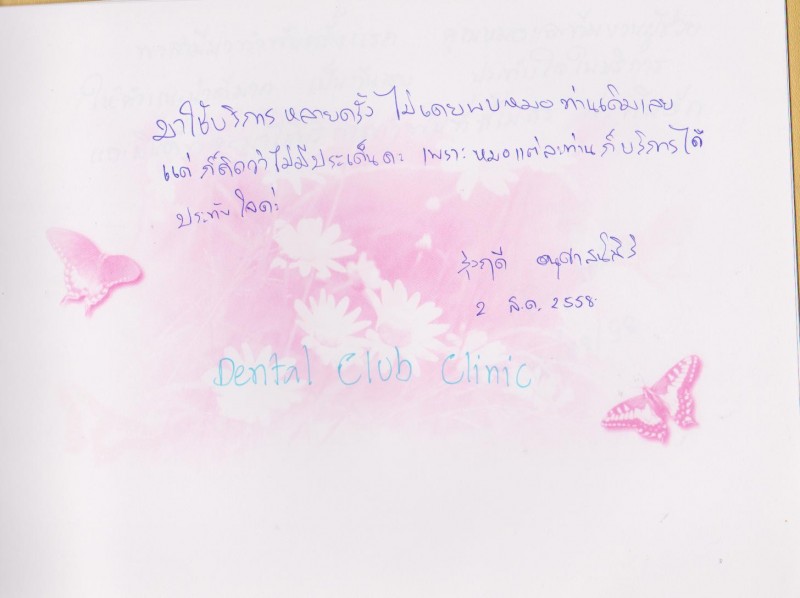 มาใช้บริการ หลายครั้ง ไม่เคยพบหมอ ท่านเดิมเลย
แต่ ก็คิดว่าไม่มีประเด็นคะ เพราะ หมอแต่ละท่าน ก็ บริการได้
ประทับใจค่ะ
2 ส.ค. 2558
Dental Club Clinic